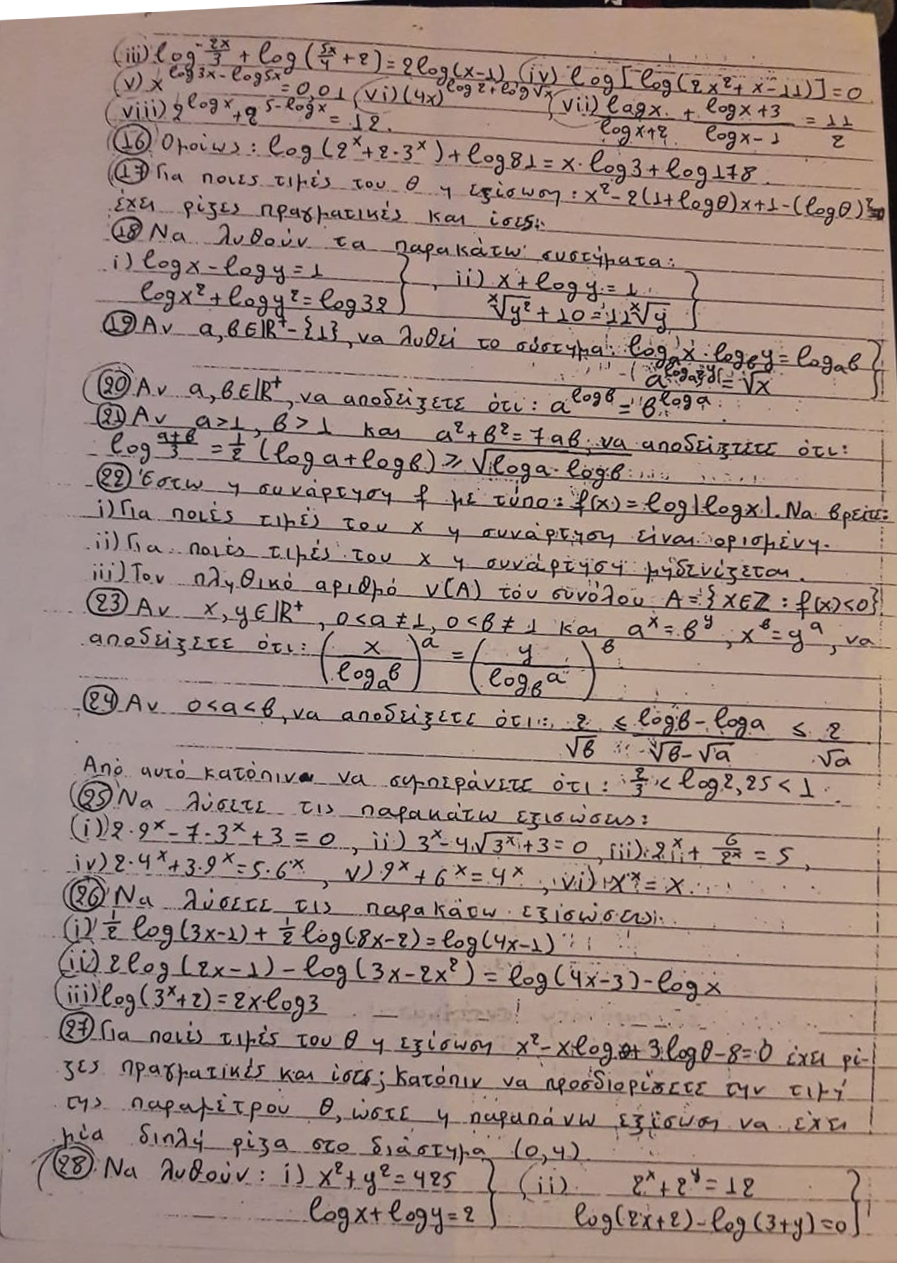 (iii) log -2x/3 + log(5x/4 + 2) = 2log(x-1), (iv) log[log(2x²+x-11)]=0
(v) x^(log3x-log5x) = 0,01, (vi) (4x)^(log2+log√x), (vii) logx/(logx+2) + (logx+3)/(logx-1) = 11/2
(viii) 2^(logx) + 2^(5-logx) = 12.
(16) Ομοίως: log(2^x+2·3^x)+log81=x·log3+log178.
(17) Για ποιες τιμές του θ η εξίσωση: x²-2(1+logθ)x+1-(logθ)²=0
έχει ρίζες πραγματικές και ίσες;
(18) Να λυθούν τα παρακάτω συστήματα:
i) logx-logy=1 }, ii) x+logy=1 }
logx²+logy²=log32 } ˣ√y²+10=11ˣ√y }
(19) Αν α,β∈ℝ⁺-{1}, να λυθεί το σύστημα: log_α x·log_β y=log_α β }
α^(log_α y)=√x }
(20) Αν α,β∈ℝ⁺, να αποδείξετε ότι: α^(logβ)=β^(logα).
(21) Αν α>1, β>1 και α²+β²=7αβ, να αποδείξτετε ότι:
log (α+β)/3 = 1/2 (logα+logβ) ≥ √(logα·logβ)
(22) Έστω η συνάρτηση f με τύπο: f(x)=log|logx|. Να βρείτε:
i) Για ποιές τιμές του x η συνάρτηση είναι ορισμένη.
ii) Για ποιές τιμές του x η συνάρτηση μηδενίζεται.
iii) Τον πληθικό αριθμό ν(Α) του συνόλου Α={x∈ℤ: f(x)<0}
(23) Αν x,y∈ℝ⁺, 0<α≠1, 0<β≠1 και α^x=β^y, x^β=y^α, να
αποδείξετε ότι: (x/log_α β)^α = (y/log_β α)^β
(24) Αν 0<α<β, να αποδείξετε ότι: 2/√β ≤ (logβ-logα)/(√β-√α) ≤ 2/√α
Από αυτό κατόπιν να συμπεράνετε ότι: 2/3 < log2,25 < 1.
(25) Να λύσετε τις παρακάτω εξισώσεις:
(i) 2·9^x-7·3^x+3=0, ii) 3^x-4√3^x+3=0, iii) 2^x+6/2^x=5,
iv) 2·4^x+3·9^x=5·6^x, v) 9^x+6^x=4^x, vi) x^x=x.
(26) Να λύσετε τις παρακάτω εξισώσεις:
(i) 1/2 log(3x-2)+1/2 log(8x-2)=log(4x-1)
(ii) 2log(2x-1)-log(3x-2x²)=log(4x-3)-logx
(iii) log(3^x+2)=2x·log3
(27) Για ποιές τιμές του θ η εξίσωση x²-x·logθ+3·logθ-8=0 έχει ρί-
ζες πραγματικές και ίσες; Κατόπιν να προσδιορίσετε την τιμή
της παραμέτρου θ, ώστε η παραπάνω εξίσωση να έχει
μία διπλή ρίζα στο διάστημα (0,4)
(28) Να λυθούν: i) x²+y²=425 } (ii) 2^x+2^y=12 }
logx+logy=2 } log(2x+2)-log(3+y)=0 }